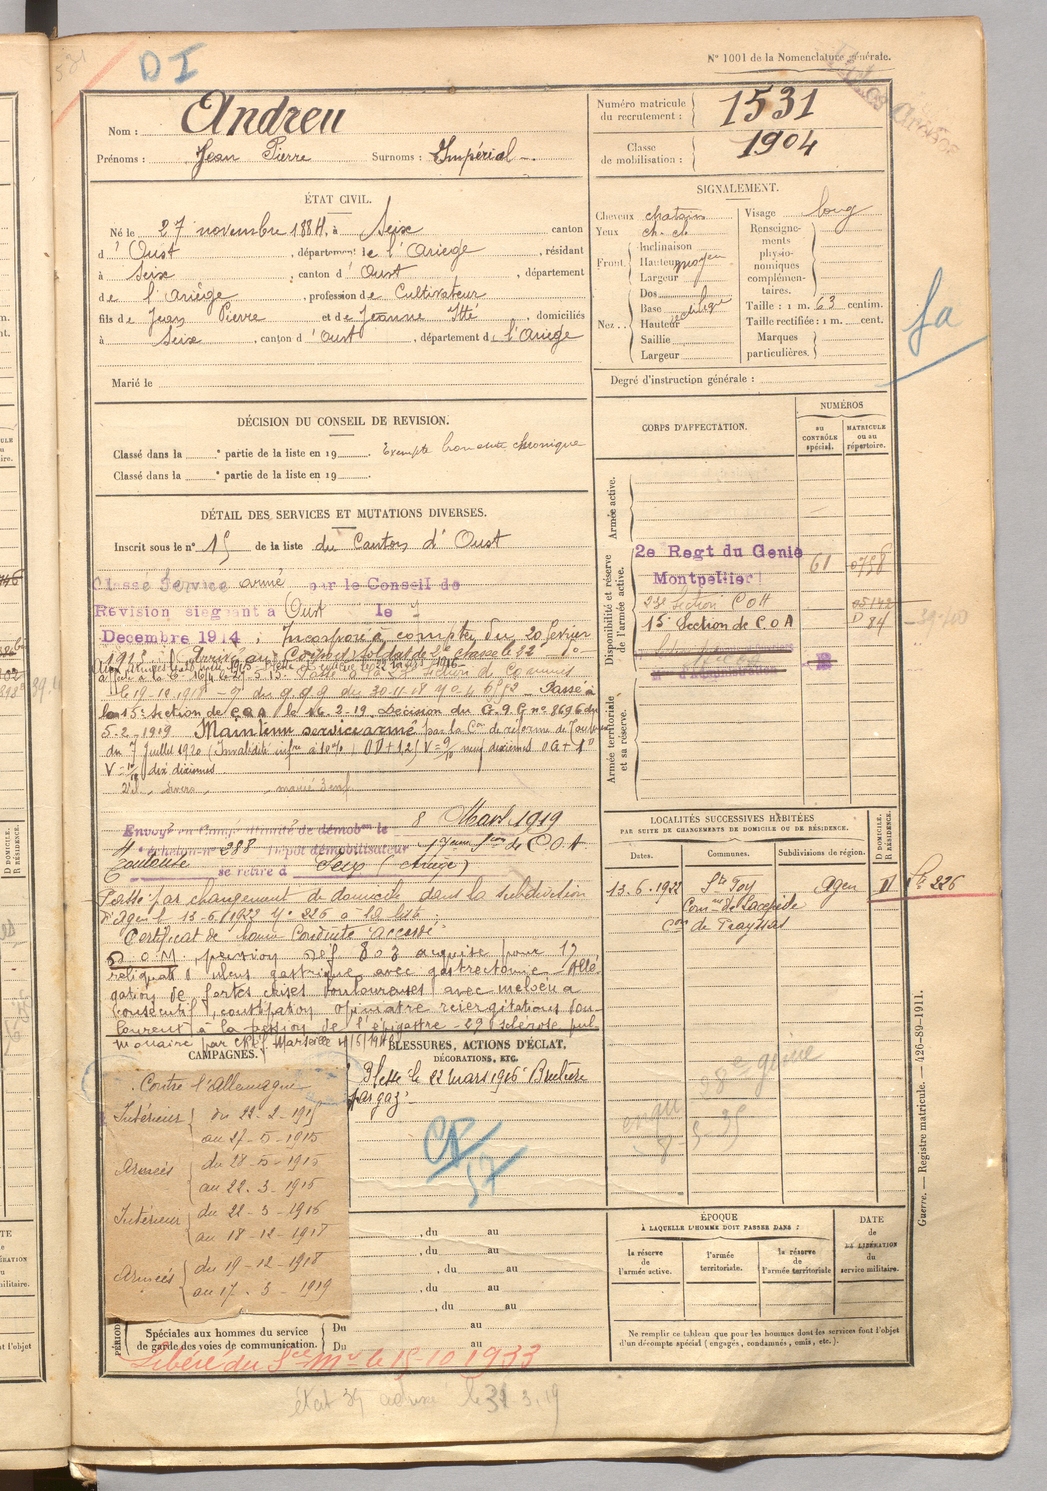 N° 1001 de la Nomenclature générale.
DI
Nom : Andreu
Prénoms : Jean Pierre Surnoms : Impérial
Numéro matricule du recrutement : 1531
Classe de mobilisation : 1904
ÉTAT CIVIL.
Né le 27 novembre 1884, à Seix canton
d'Oust, département de l'Ariège, résidant
à Seix, canton d'Oust, département
de l'Ariège, profession de Cultivateur
fils de Jean Pierre et de Jeanne Itte, domiciliés
à Seix, canton d'Oust, département de l'Ariège
Marié le
SIGNALEMENT.
Cheveux chatains
Yeux ch. cl.
Front. Inclinaison
Hauteur moyen
Largeur
Nez. Dos
Base rectiligne
Hauteur
Saillie
Largeur
Visage long
Renseignements physionomiques complémentaires.
Taille : 1 m. 63 centim.
Taille rectifiée : 1 m. cent.
Marques particulières.
Degré d'instruction générale :
fa
DÉCISION DU CONSEIL DE REVISION.
Classé dans la e partie de la liste en 19 . Exempté bronchite chronique
Classé dans la e partie de la liste en 19 .
CORPS D'AFFECTATION.
NUMÉROS
au CONTRÔLE spécial.
MATRICULE ou au répertoire.
Armée active.
Disponibilité et réserve de l'armée active.
2e Regt du Genie 61 0758
Montpellier
23e Section COA 05142
15e Section de C.O.A D 84
Armée territoriale et sa réserve.
DÉTAIL DES SERVICES ET MUTATIONS DIVERSES.
Inscrit sous le n° 15 de la liste du Canton d'Oust
Classé Service armé par le Conseil de
Révision siégeant à Oust le 7
Decembre 1914 ; Incorporé à compter du 20 février
1915. Arrivé au Corps et soldat de 2e classe le 22
le 19-12-1918 du G.Q.G du 30-11-18 Passé à
la 15e Section de COA le 16-2-19. Décision du G.Q.G n° 8696 du
5-2-1919 Maintenu service armé par la Con de réforme de Toulouse
du 7 juillet 1920 (Invalidité infre à 10%)
V = dix dixièmes
Envoyé en Congé illimité de démobon le 8 Mars 1919
4 échelon n° 288 Dépôt démobilisateur 17eme Son de C.O.A.
Toulouse se retire à Seix (Ariège)
Passé par changement de domicile dans la subdivision
d'Agen le 13-6-1922 n° 226 à la liste
Certificat de bonne Conduite "accordé"
D.O.M. pension acquise pour 1°
reliquat d'ulcus gastrique avec gastrectomie Allé
gation de fortes crises douloureuses avec melaena
consécutif, constipation opiniatre
loureux à la pression de l'épigastre - 2° sclérose pul
monaire par Marseille
LOCALITÉS SUCCESSIVES HABITÉES
PAR SUITE DE CHANGEMENTS DE DOMICILE OU DE RÉSIDENCE.
Dates. Communes. Subdivisions de région. D DOMICILE. R RÉSIDENCE.
13.6.1922 Ste Foy Agen D
Comne de Lacépède
con de Prayssas
226
CAMPAGNES.
Contre l'Allemagne
Intérieur du 22-2-1915
au 27-5-1915
Armées du 28-5-1915
au 22-3-1916
Intérieur du 22-3-1916
au 18-12-1918
Armées du 19-12-1918
au 17-3-1919
BLESSURES, ACTIONS D'ÉCLAT,
DÉCORATIONS, ETC.
Blessé le 22 mars 1916
par gaz
57
28e génie
, du au
, du au
, du au
, du au
, du au
PÉRIOD
Spéciales aux hommes du service
de garde des voies de communication.
Du au
Du au
ÉPOQUE
À LAQUELLE L'HOMME DOIT PASSER DANS :
la réserve de l'armée active.
l'armée territoriale.
la réserve de l'armée territoriale
DATE de LA LIBÉRATION du service militaire.
Ne remplir ce tableau que pour les hommes dont les services font l'objet
d'un décompte spécial (engagés, condamnés, omis, etc.).
Libéré du Sce Mre le 15-10-1933
état 34 le 31.3.19
Guerre. — Registre matricule. — 426-89-1911.